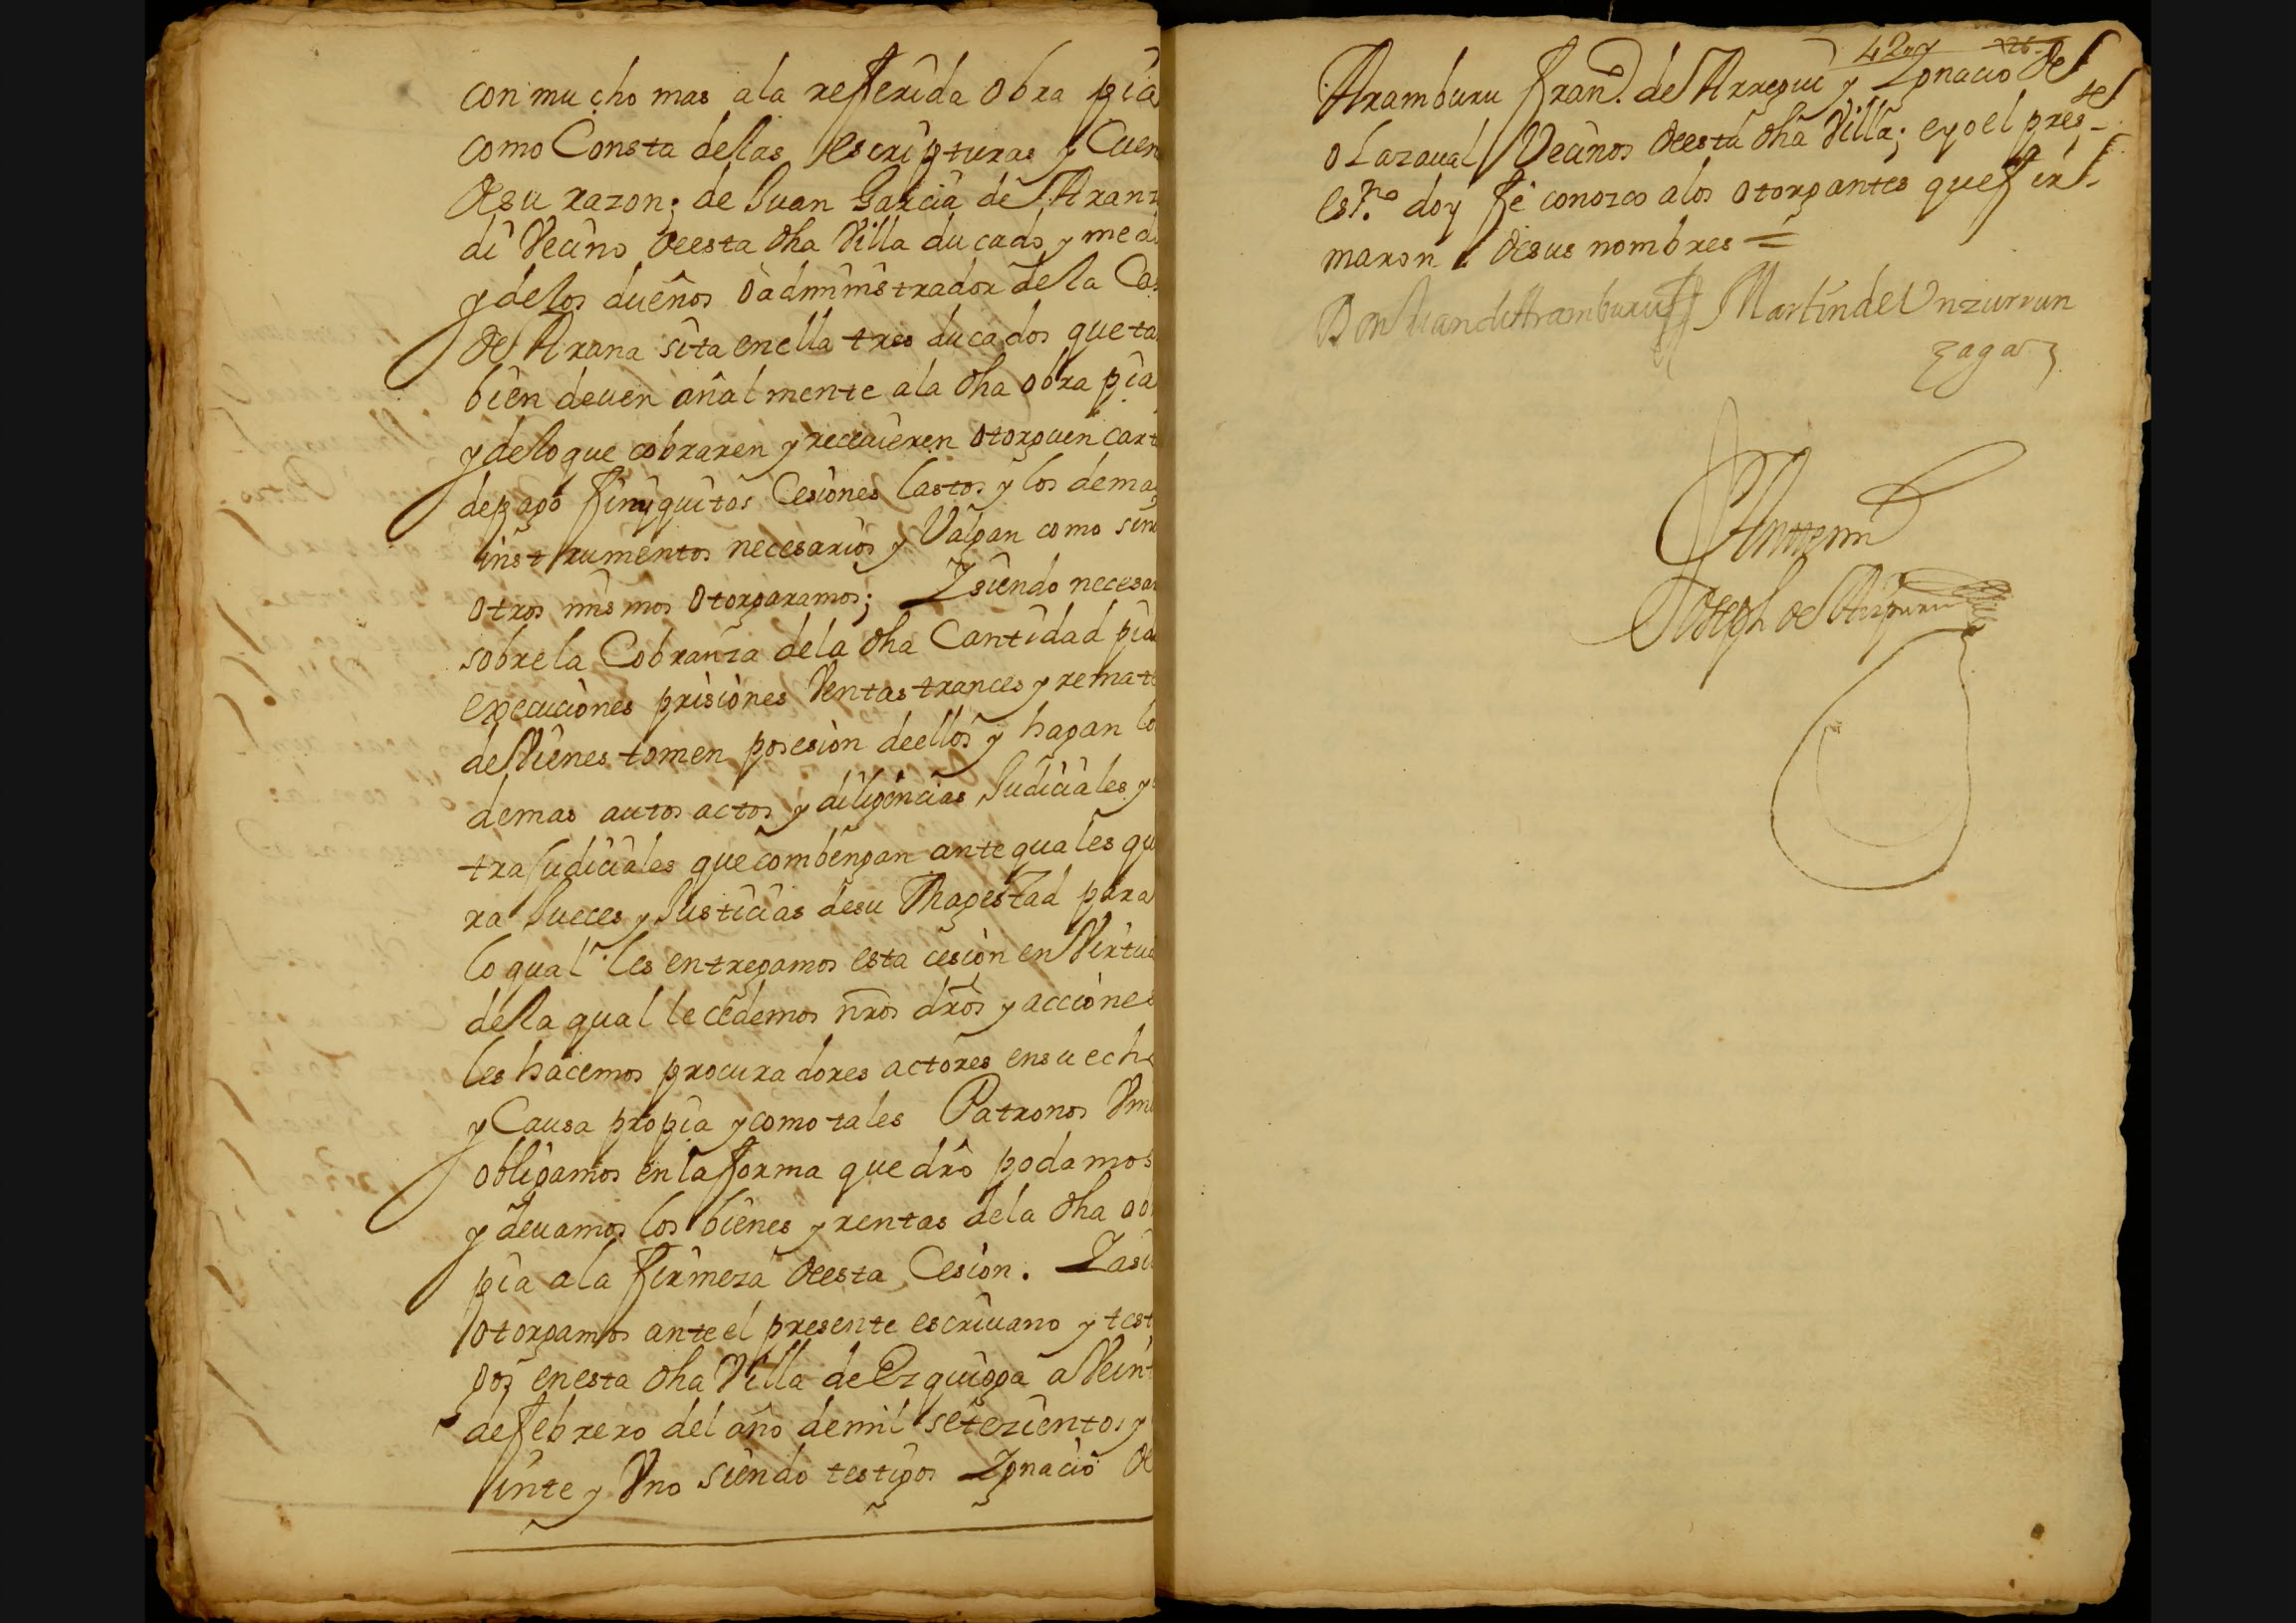 con mucho mas ala referida obra pia
como Consta delas escripturas y Cuen
desu razon; de Juan Garcia de Aranz
di Vecino deesta dha Villa ducado y medi
y delos dueños o administrador de la Cas
de Arana sita enella tres ducados que ta
bien deven añalmente ala dha obra pia
y delo que cobraren y recevieren otorguen cart
depago finiquitos Cesiones lastos y los demas
instrumentos necesarios y Valgan como si no
otros mismos otorgaramos; Y siendo necesar
sobre la Cobranza dela dha Cantidad pida
execuciones prisiones Ventas trances y remate
de Vienes tomen posesion deellos y hagan lo
demas autos actos y diligencias Judiciales y
tra Judiciales que combengan ante quales qu
ra Jueces y Justicias desu Magestad para
lo qual les entregamos esta cesion en Virtud
dela qual le cedemos nros dros y acciones
les hacemos procuradores actores ensu echo
y Causa propia y como tales Patronos
obligamos en la forma que dro podamos
y devamos los bienes y rentas dela dha ob
pia ala firmeza deesta Cesion. Y asi
otorgamos ante el presente escrivano y test
gos enesta dha Villa de Ezquioga a Veint
de febrero del año de mil setezientos y
inte y Vno siendo testigos Ygnacio de
427
Aramburu Fran.co de Arregui y Ygnacio de
olazaval Vecinos deesta dha Villa; e yo el pres.te
es.no doy fe conozco alos otorgantes que fir
maron de sus nombres =
Don Juan de Aramburu Martin de Unzurrun
zaga
Ante mi
Joseph de Aizpuru